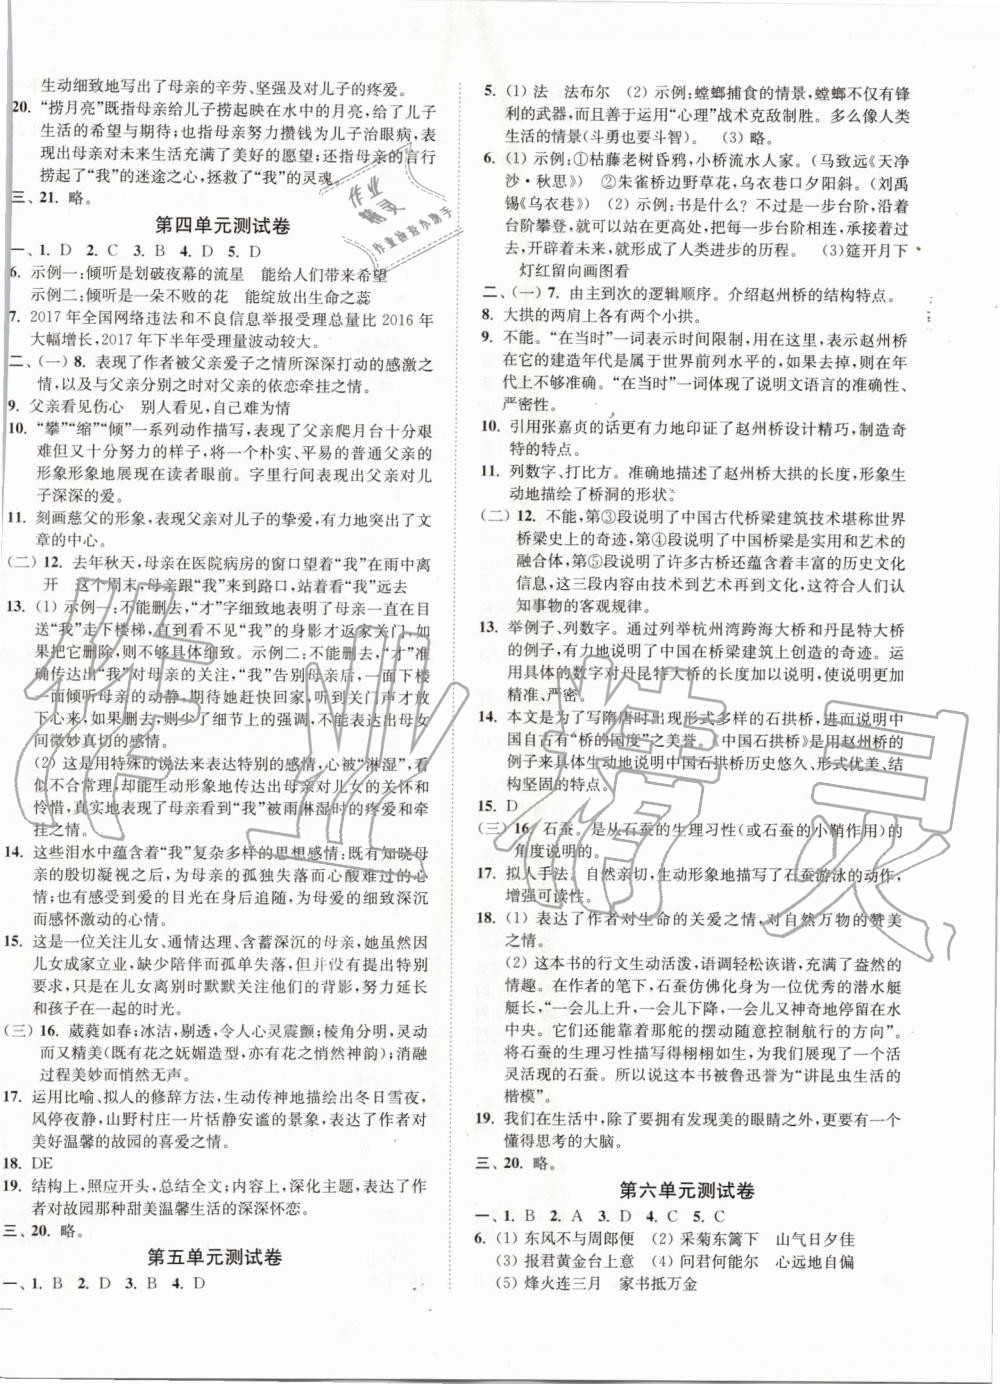 生动细致地写出了母亲的辛劳、坚强及对儿子的疼爱。
20. “捞月亮”既指母亲给儿子捞起映在水中的月亮,给了儿子
生活的希望与期待;也指母亲努力攒钱为儿子治眼病,表
现出母亲对未来生活充满了美好的愿望;还指母亲的言行
捞起了“我”的迷途之心,拯救了“我”的灵魂。
三、21. 略。
第四单元测试卷
一、1. D 2. C 3. B 4. D 5. D
6. 示例一:倾听是划破夜幕的流星 能给人们带来希望
示例二:倾听是一朵不败的花 能绽放出生命之蕊
7. 2017年全国网络违法和不良信息举报受理总量比2016年
大幅增长,2017年下半年受理量波动较大。
二、(一) 8. 表现了作者被父亲爱子之情所深深打动的感激之
情,以及与父亲分别之时对父亲的依恋牵挂之情。
9. 父亲看见伤心 别人看见,自己难为情
10. “攀”“缩”“倾”一系列动作描写,表现了父亲爬月台十分艰
难但又十分努力的样子,将一个朴实、平易的普通父亲的
形象形象地展现在读者眼前。字里行间描写了父亲对儿
子深深的爱。
11. 刻画慈父的形象,表现父亲对儿子的挚爱,有力地突出了文
章的中心。
(二) 12. 去年秋天,母亲在医院病房的窗口望着“我”在雨中离
开 这个周末,母亲跟“我”来到路口,站着看“我”远去
13. (1) 示例一:不能删去,“才”字细致地表明了母亲一直在目
送“我”走下楼梯,直到看不见“我”的身影才返家关门。如
果把它删除,则不够具体细致。示例二:不能删去,“才”准
确传达出离开时,“我”告别母亲后,一面下楼
一面倾听母亲的动静,期待她赶快回家,听到关门声才放
下心来。如果删去,则少了细节上的强调,不能表达出母女
间微妙真切的感情。
(2) 这是用特殊的说法来表达特别的感情,心被“淋湿”,看
似不合常理,却能生动形象地传达出母亲对女儿的关怀和
怜惜,真实地再现了母亲看到“我”被雨淋湿时的疼爱和牵
挂之情。
14. 这些泪水中蕴含着“我”复杂多样的思想感情:既有知晓母
亲的殷切凝视之后,为母亲的孤独失落而心痛不已的深
情;也有感受到爱的目光在身后追随,为母爱的细致深沉
而感怀激动的心情。
15. 这是一位关注儿女、通情达理、含蓄深沉的母亲,她虽然因
儿女成家立业,缺少陪伴而孤单失落,但并没有提出特别
要求,只是在儿女离别时默默关注他们的背影,努力延长
和孩子在一起的时光。
(三) 16. 葳蕤如春;冰洁,剔透,令人心灵震颤;棱角分明,灵动
而又精美(既有花之妩媚造型,亦有花之悄然神韵);消融
过程美妙而悄然无声。
17. 运用比喻、拟人的修辞方法,生动传神地描绘出冬日雪夜,
风停夜静,山野村庄一片恬静安谧的景象,表达了作者对
美好温馨的故园的喜爱之情。
18. DE
19. 结构上,照应开头,总结全文;内容上,深化主题,表达了作
者对故园那种甜美温馨生活的深深怀恋。
三、20. 略。
第五单元测试卷
一、1. B 2. D 3. B 4. D
5. (1) 法 法布尔 (2) 示例:螳螂捕食的情景,螳螂不仅有锋
利的武器,而且善于运用“心理”战术克敌制胜。多么像人类
生活的情景(斗勇也要斗智)。 (3) 略。
6. (1) 示例:①枯藤老树昏鸦,小桥流水人家。(马致远《天净
沙·秋思》) ②朱雀桥边野草花,乌衣巷口夕阳斜。(刘禹
锡《乌衣巷》) (2) 示例:书是什么? 书不过是一步台阶,沿着
台阶攀登,就可以站在更高处,而每一步台阶连接起
来,开辟着未来,就形成了人类进步的历程。 (3)筵开月下
灯红留向画图看
二、(一) 7. 由主到次的逻辑顺序。介绍赵州桥的结构特点。
8. 大拱的两肩上各有两个小拱。
9. 不能。“在当时”一词表示时间限制,用在这里,表示赵州桥
在它的建造年代是属于世界前列水平的,如果去掉,则在年
代上不够准确。“在当时”一词体现了说明文语言的准确性、
严密性。
10. 引用张嘉贞的话更有力地印证了赵州桥设计精巧,制造奇
特的特点。
11. 列数字、打比方。准确地描述了赵州桥大拱的长度,形象生
动地描绘了桥洞的形状。
(二) 12. 不能,第③段说明了中国古代桥梁建筑技术堪称世界
桥梁史上的奇迹,第④段说明了中国桥梁是实用和艺术的
融合体,第⑤段说明了许多古桥还蕴含着丰富的历史文化
信息,这三段内容由技术到艺术再到文化,这符合人们认
知事物的客观规律。
13. 举例子、列数字。通过列举杭州湾跨海大桥和丹昆特大桥
的例子,有力地说明了中国在桥梁建筑上创造的奇迹。运
用具体的数字对丹昆特大桥的长度加以说明,使说明更加
精准、严密。
14. 本文是为了写隋唐时出现形式多样的石拱桥,进而说明中
国自古有“桥的国度”之美誉。《中国石拱桥》是用赵州桥的
例子来具体说明中国石拱桥历史悠久、形式优美、结
构坚固的特点。
15. D
(三) 16. 石蚕。是从石蚕的生理习性(或石蚕的小鞘作用)的
角度说明的。
17. 拟人手法。自然亲切,生动形象地描写了石蚕游泳的动作,
增强可读性。
18. (1) 表达了作者对生命的关爱之情,对自然万物的赞美
之情。
(2) 这本书的行文生动活泼,语调轻松诙谐,充满了盎然的
情趣。在作者的笔下,石蚕仿佛化身为一位优秀的潜水艇
艇长,“一会儿上升,一会儿下降,一会儿又神奇地停留在水
中央。它们还能靠着那舵的摆动随意控制航行的方向”。
将石蚕的生理习性描写得栩栩如生,为我们展现了一个活
灵活现的石蚕。所以说这本书被鲁迅誉为“讲昆虫生活的
楷模”。
19. 我们在生活中,除了要拥有发现美的眼睛之外,更要有一个
懂得思考的大脑。
三、20. 略。
第六单元测试卷
一、1. B 2. A 3. D 4. C 5. C
6. (1) 东风不与周郎便 (2) 采菊东篱下 山气日夕佳
(3) 报君黄金台上意 (4) 问君何能尔 心远地自偏
(5) 烽火连三月 家书抵万金
作业精灵